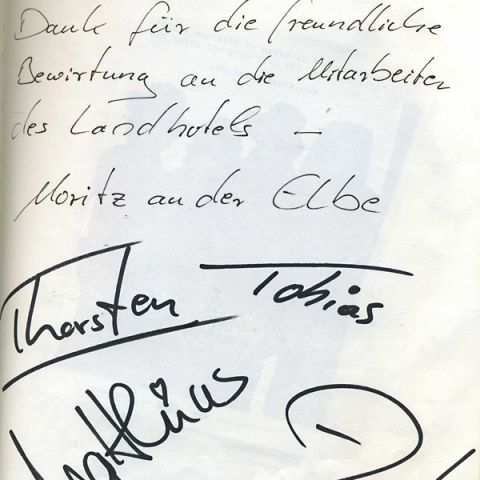 Dank für die freundliche
Bewirtung an die Mitarbeiter
des Landhotels –
Moritz an der Elbe
Thorsten Tobias
Matthias